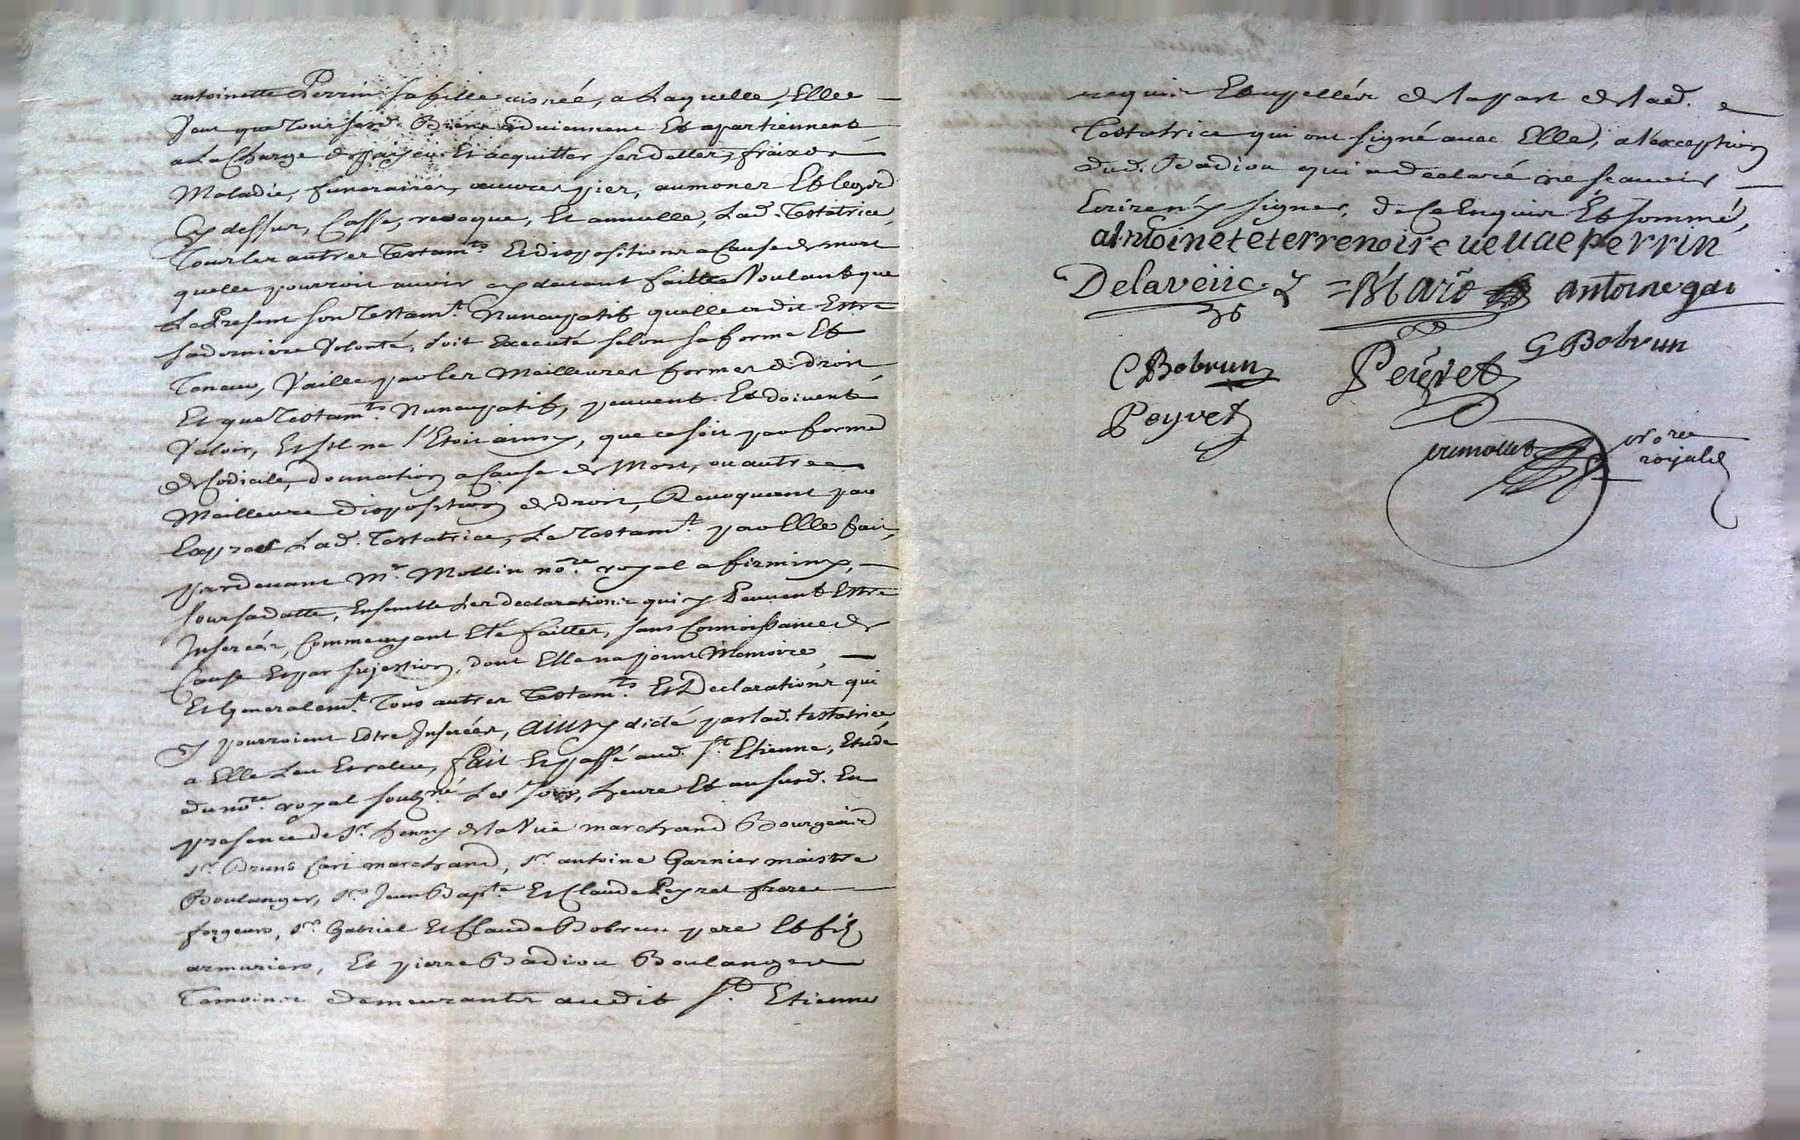 antoinette Perrin sa fille aisnée, a Laquelle, Elle
veut que tous sesd. Biens adviennent Et apartiennent
a La Charge de payer Et acquitter ses dettes, fraix de
Maladie, funeraires, œuvres pies, aumones Et legs
Cy dessus, Casse, revoque, Et annulle, Lad. Testatrice,
Tous les autres Testamts. Et dispositions a Cause de mort
quelle pourroit avoir cy devant faittes Voulant que
Le Present son Testamt. Nuncupatif quelle a dit Estre
sa derniere Volonté, soit Executé selon sa forme Et
Teneur, Vaille par les Meilleures formes de droit
Et que Testamts. Nuncupatifs, peuvent Et doivent
Valoir, Et s'il ne l'Etoit ainsy, que ce soit par forme
de Codicile, donnation a Cause de Mort, ou autre
Meilleure disposition de droit, Revoquant par
Exprés Lad. Testatrice, Le Testamt. par Elle fait,
pardevant Mr. Mollin nore. royal a firminy,
sous sa datte, Ensemble Les declarations qui y Peuvent Estre
Inserées, Comme ayant Eté faittes, sans Connoissance de
Cause Et par sujestion, dont Elle na point Memoire,
Et Generalemt. Tous autres Testamts. Et Declarations qui
y pourroient Estre Inserées, ainsy dicté par lad. testatrice
a Elle Leu Et releu, fait Et passé aud. St. Etienne, Etude
du nore. royal soubzné Les Jour, heure Et an susd. En
presence de Sr. henry de la Vüe marchand Bourgeois
Sr. Bruno Cari marchand, Sr. antoine Garnier maistre
Boulanger, Sr. Jean Bapte. Et Claude Peyret freres
forgeurs, Sr. Gabriel Et Claude Bobrun pere Et fils
armuriers, Et pierre Badiou Boulanger
Temoins demeurants audit St. Etienne
requis Et apellés de la part de lad.
Testatrice qui ont signé avec Elle, a l'exception
dud. Badiou qui a declaré ne scavoir
Ecrire ny signer, de Ce Enquis Et sommé,
antoinete terrenoire ueuue perrin
Delaveüe
antoine gar
C Bobrun
Peÿret
G Bobrun
Peyret
nore
royal